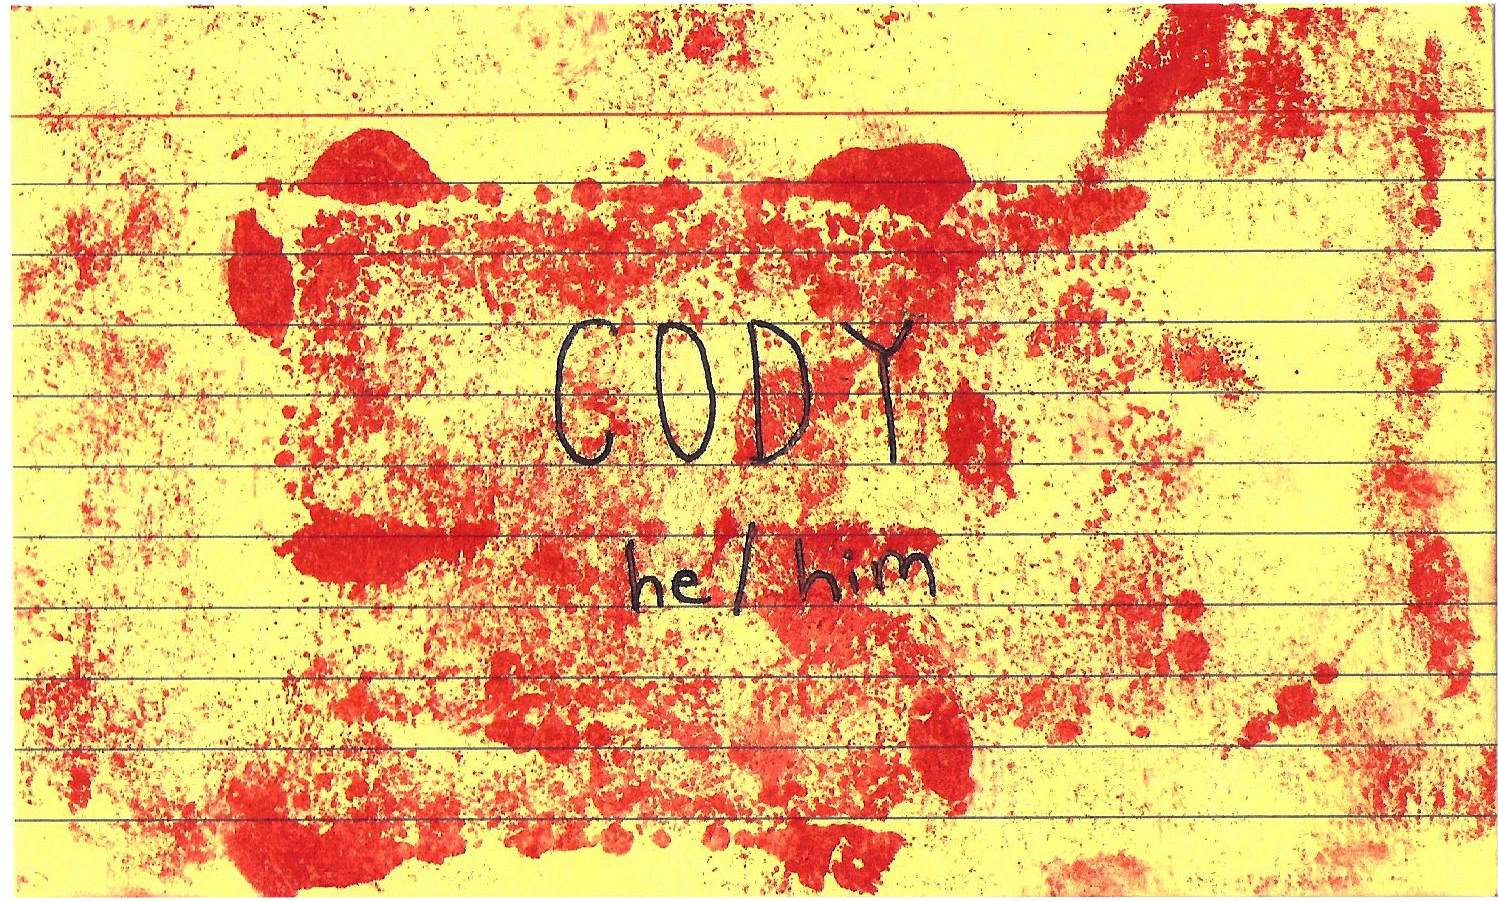 CODY
he/him